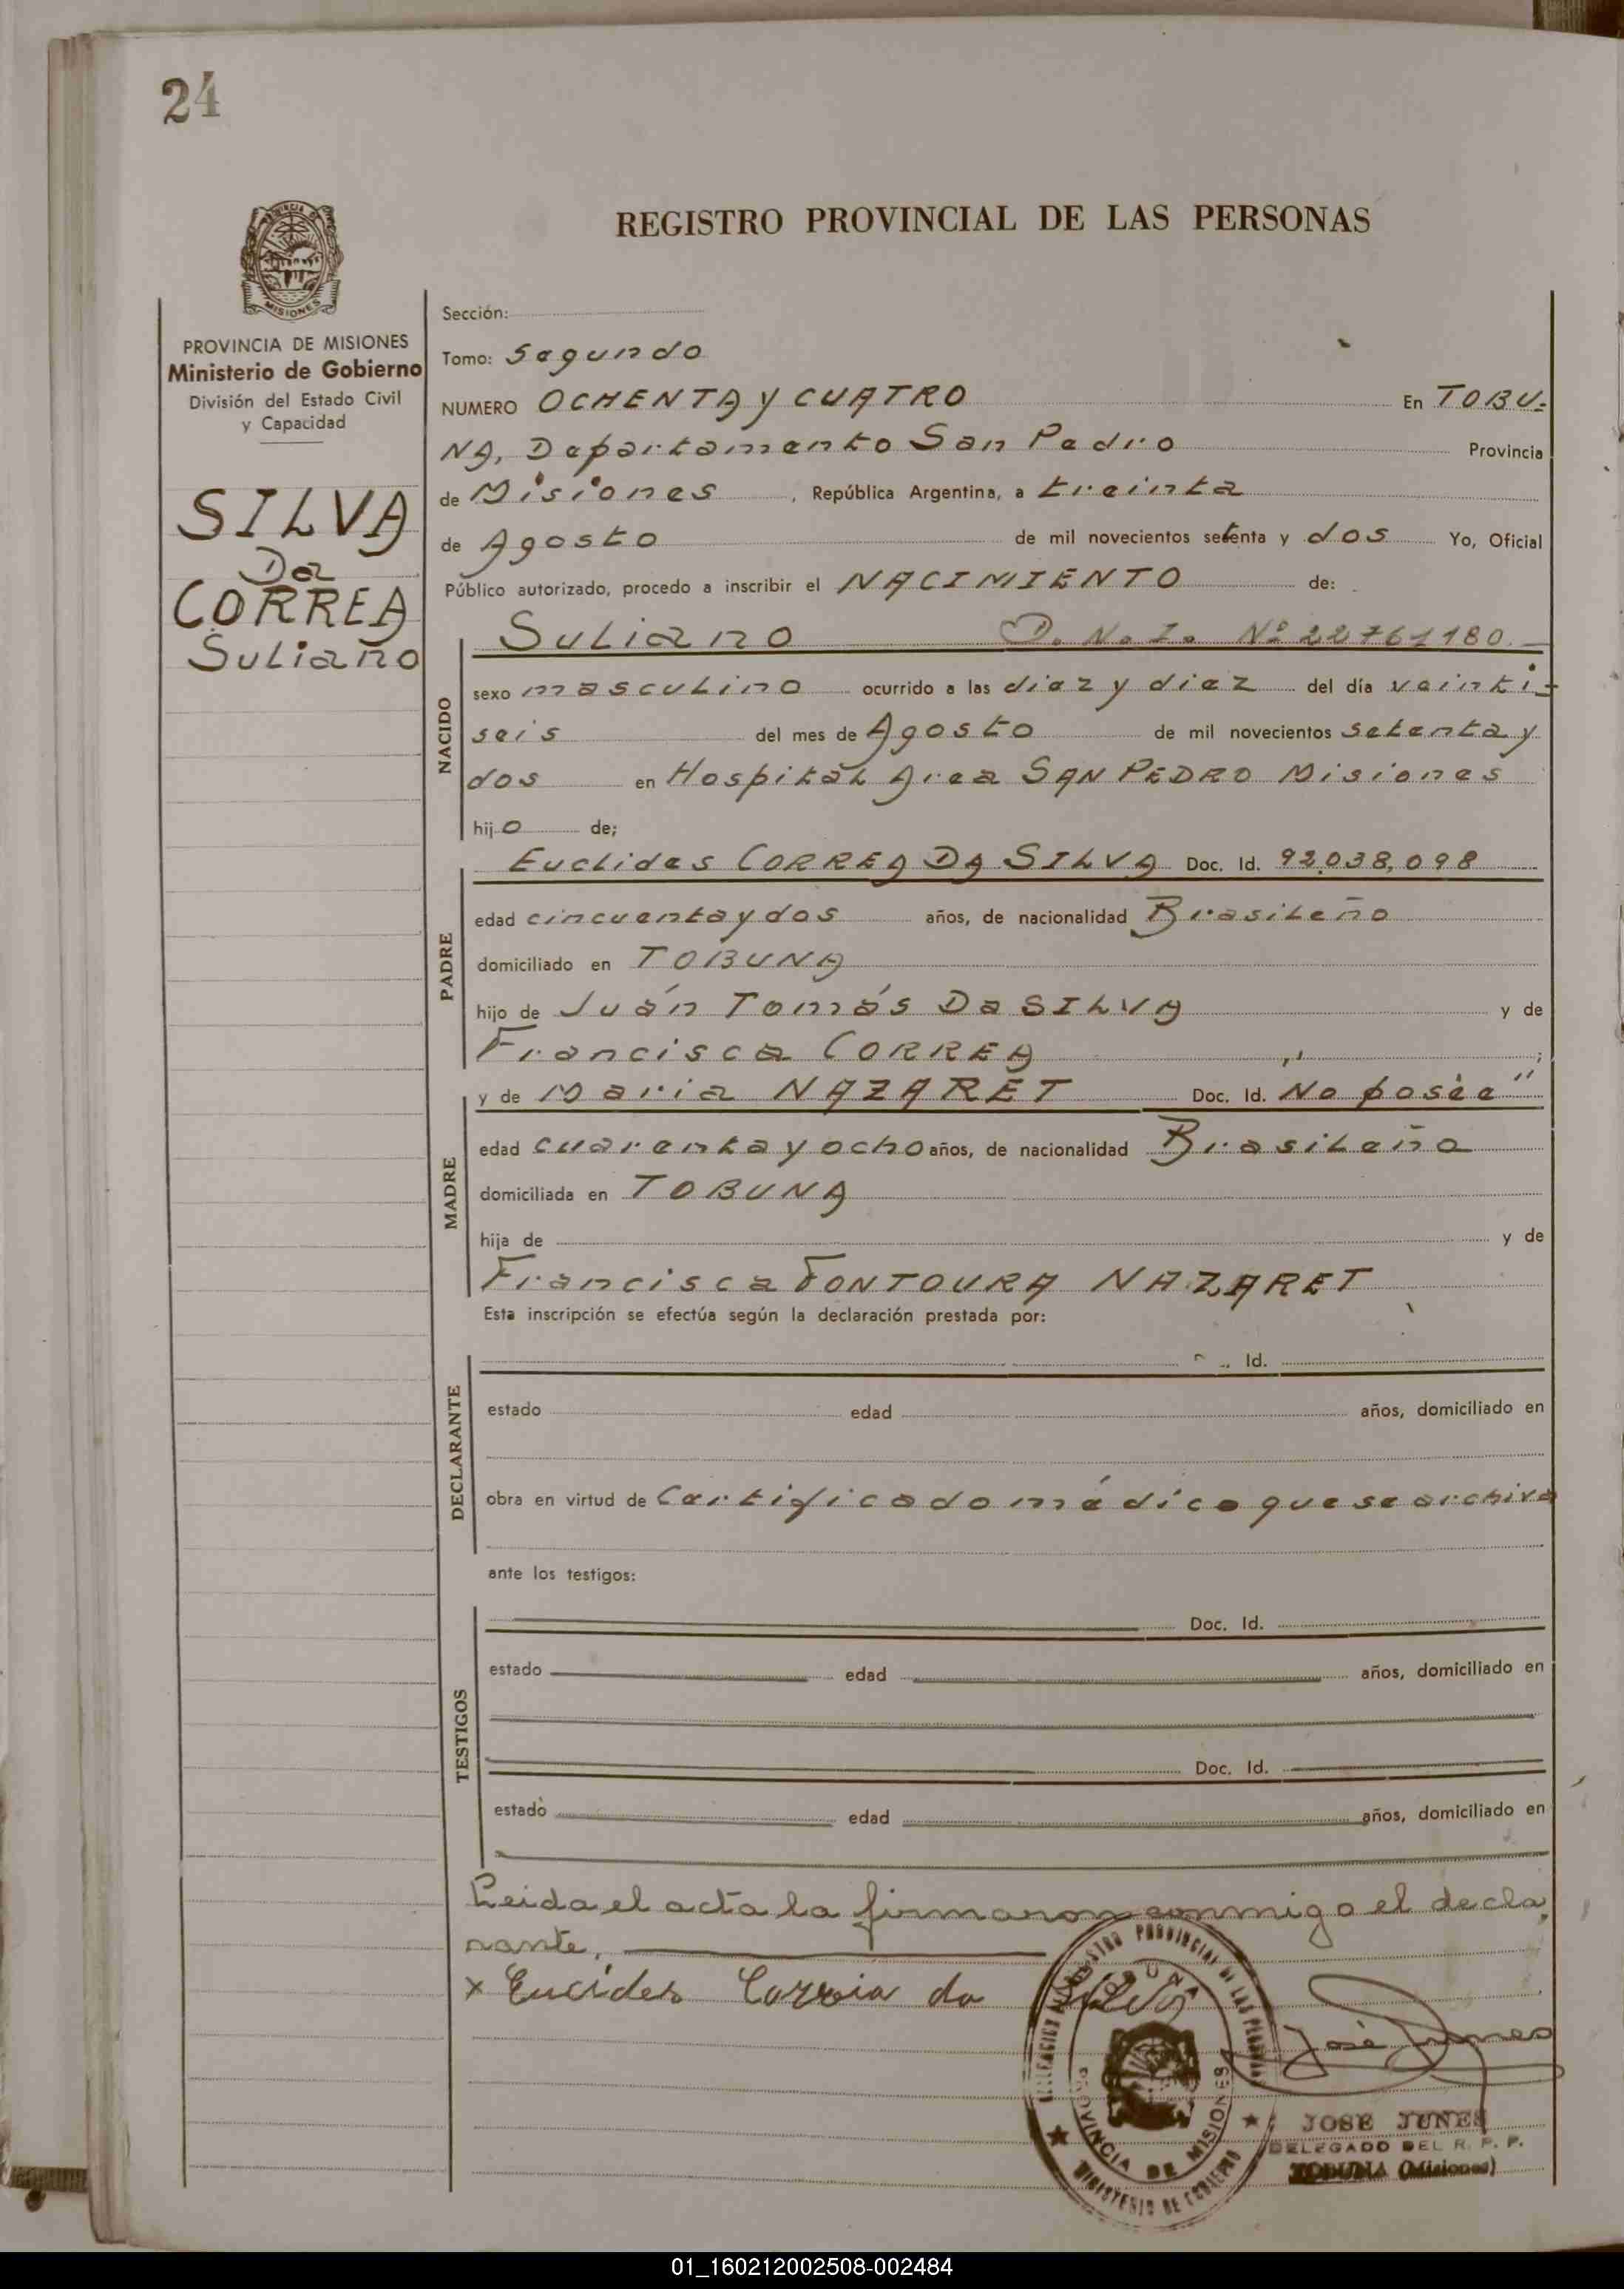 24
REGISTRO PROVINCIAL DE LAS PERSONAS
PROVINCIA DE MISIONES
Ministerio de Gobierno
División del Estado Civil
y Capacidad
SILVA
Da
CORREA
Suliano
Sección:
Tomo: Segundo
NUMERO OCHENTA y CUATRO En TOBU-
NA, Departamento San Pedro Provincia
de Misiones, República Argentina, a treinta
de Agosto de mil novecientos setenta y dos Yo, Oficial
Público autorizado, procedo a inscribir el NACIMIENTO de:
NACIDO
Suliano D. N. I. Nº 22761180.
sexo masculino ocurrido a las diez y diez del día veinti-
seis del mes de Agosto de mil novecientos setenta y
dos en Hospital Area SAN PEDRO Misiones
hijo de;
PADRE
Euclides CORREA DA SILVA Doc. Id. 92.038,098
edad cincuenta y dos años, de nacionalidad Brasileño
domiciliado en TOBUNA
hijo de Juán Tomás Da SILVA y de
Francisca CORREA ;
MADRE
y de Maria NAZARET Doc. Id. No posèe "
edad cuarenta y ocho años, de nacionalidad Brasileña
domiciliada en TOBUNA
hija de y de
Francisca FONTOURA NAZARET
Esta inscripción se efectúa según la declaración prestada por:
DECLARANTE
Id.
estado edad años, domiciliado en
obra en virtud de Certificado médico que se archiva
ante los testigos:
TESTIGOS
Doc. Id.
estado edad años, domiciliado en
Doc. Id.
estado edad años, domiciliado en
Leida el acta la firmaron conmigo el decla,
rante,
x Eucides Correia da Silva
DELEGACION REGISTRO PROVINCIAL DE LAS PERSONAS
TOBUNA
PROVINCIA DE MISIONES
MINISTERIO DE GOBIERNO
José Junes
JOSE JUNES
DELEGADO DEL R. P. P.
TOBUNA (Misiones)
01_160212002508-002484